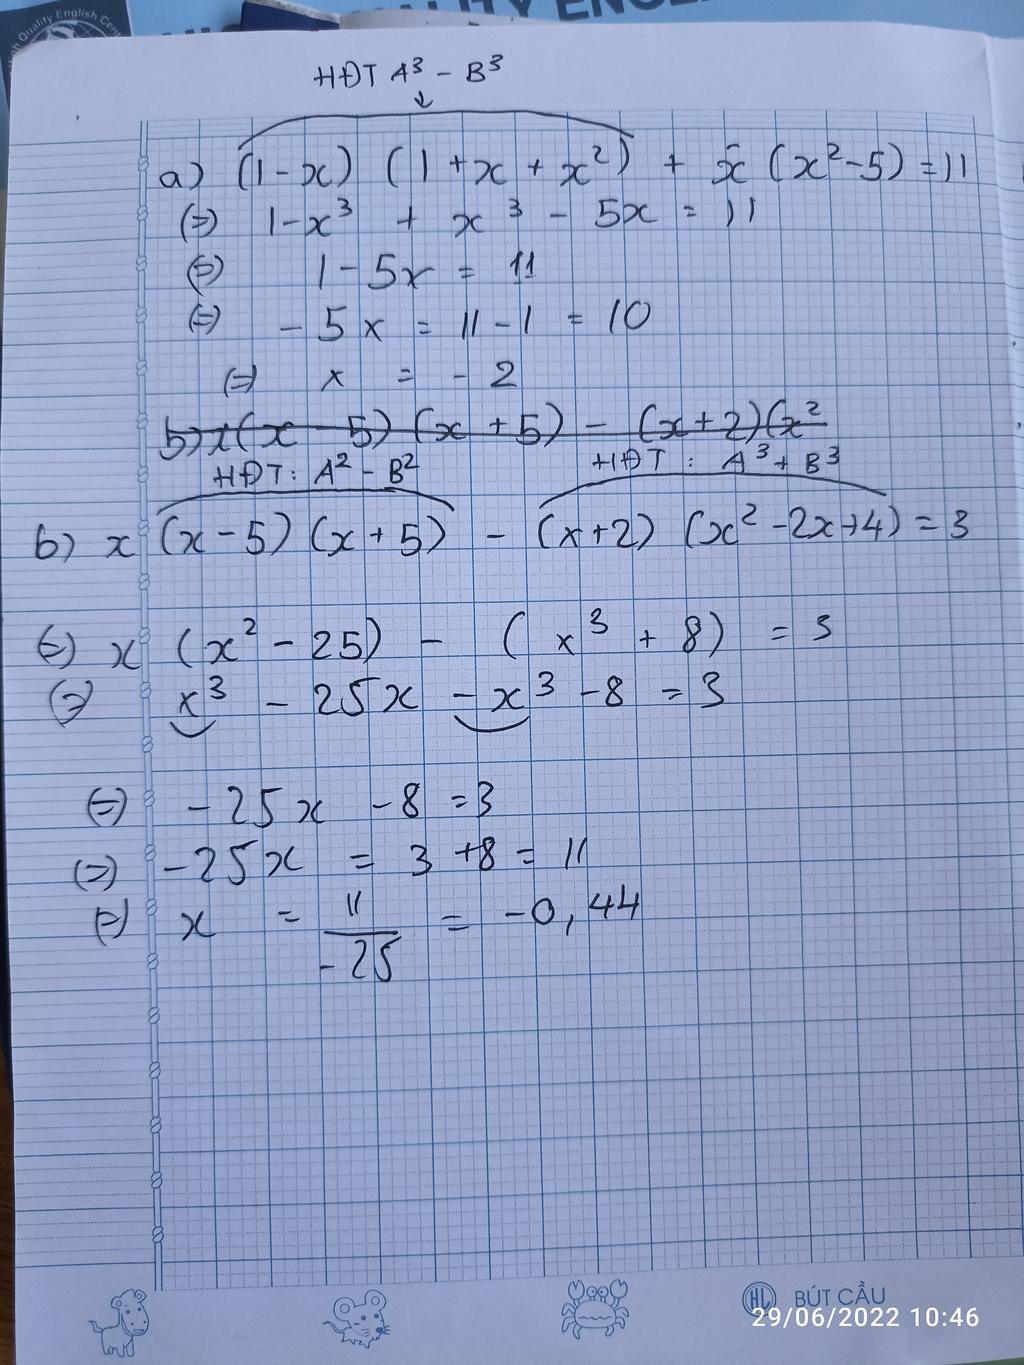 Quality English Cent
HĐT A³ - B³
↓
a) (1-x) (1+x+x²) + x (x²-5) = 11
(=) 1-x³ + x³ - 5x = 11
(=) 1 - 5x = 11
(=) - 5x = 11 - 1 = 10
(=) x = - 2
b) x(x - 5) (x + 5) - (x+2)(x²
HĐT: A² - B² HĐT : A³ + B³
b) x (x-5) (x+5) - (x+2) (x² - 2x+4) = 3
(=) x (x² - 25) - ( x³ + 8) = 3
(=) x³ - 25x - x³ - 8 = 3
(=) - 25x - 8 = 3
(=) - 25x = 3 + 8 = 11
(=) x = 11/-25 = -0,44
HL BÚT CẦU
29/06/2022 10:46